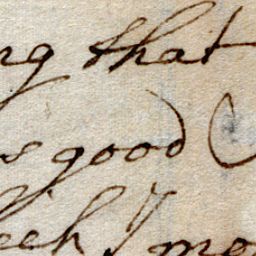 ng that
s good
eek I mo